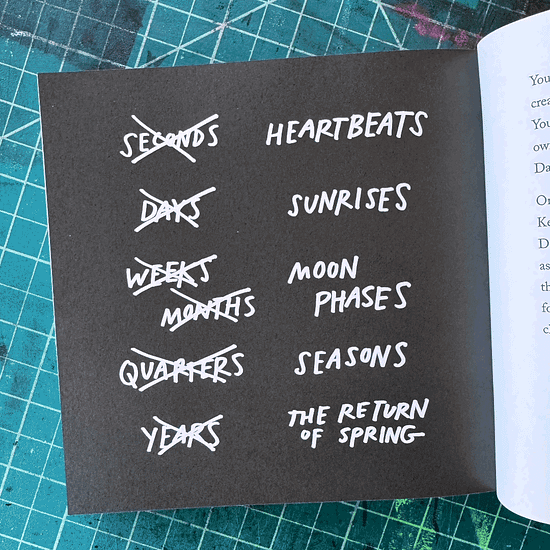 SECONDS HEARTBEATS
DAYS SUNRISES
WEEKS MOON
MONTHS PHASES
QUARTERS SEASONS
YEARS THE RETURN
OF SPRING
You
crea
You
ow
Da
Or
Ke
D
as
th
fo
cl